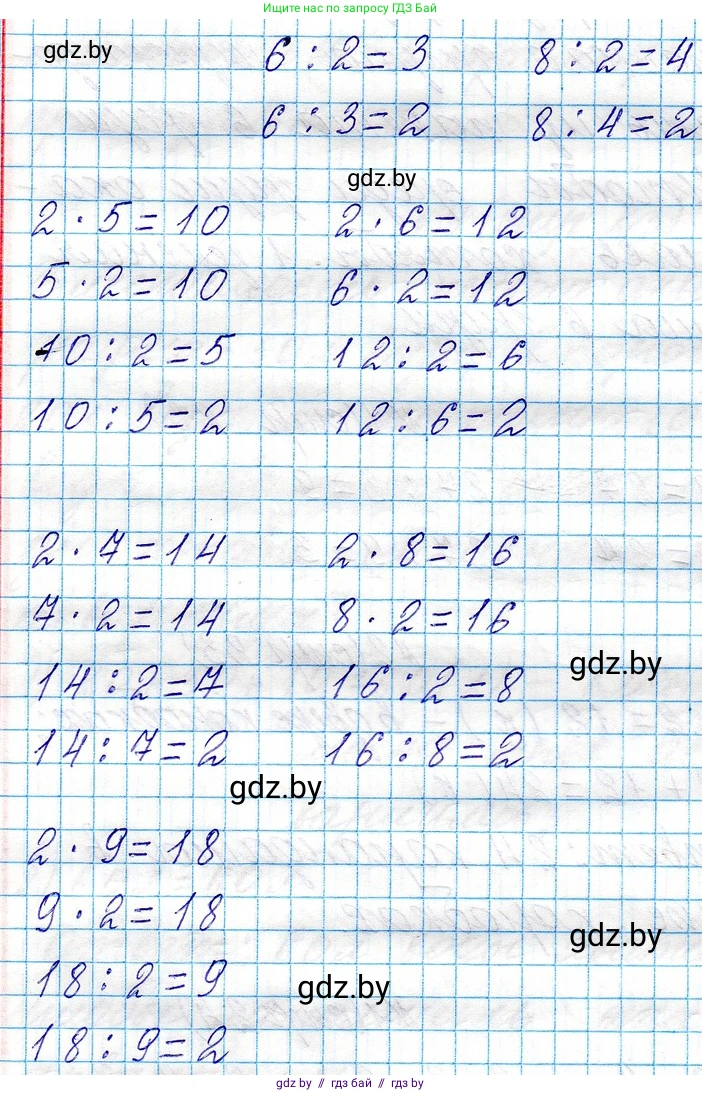 Ищите нас по запросу ГДЗ Бай
gdz.by 6 : 2 = 3 8 : 2 = 4
6 : 3 = 2 8 : 4 = 2
gdz.by
2 · 5 = 10 2 · 6 = 12
5 · 2 = 10 6 · 2 = 12
10 : 2 = 5 12 : 2 = 6
10 : 5 = 2 12 : 6 = 2
2 · 7 = 14 2 · 8 = 16
7 · 2 = 14 8 · 2 = 16
gdz.by
14 : 2 = 7 16 : 2 = 8
14 : 7 = 2 16 : 8 = 2
gdz.by
2 · 9 = 18
9 · 2 = 18
gdz.by
18 : 2 = 9
gdz.by
18 : 9 = 2
gdz by // гдз бай // гдз by